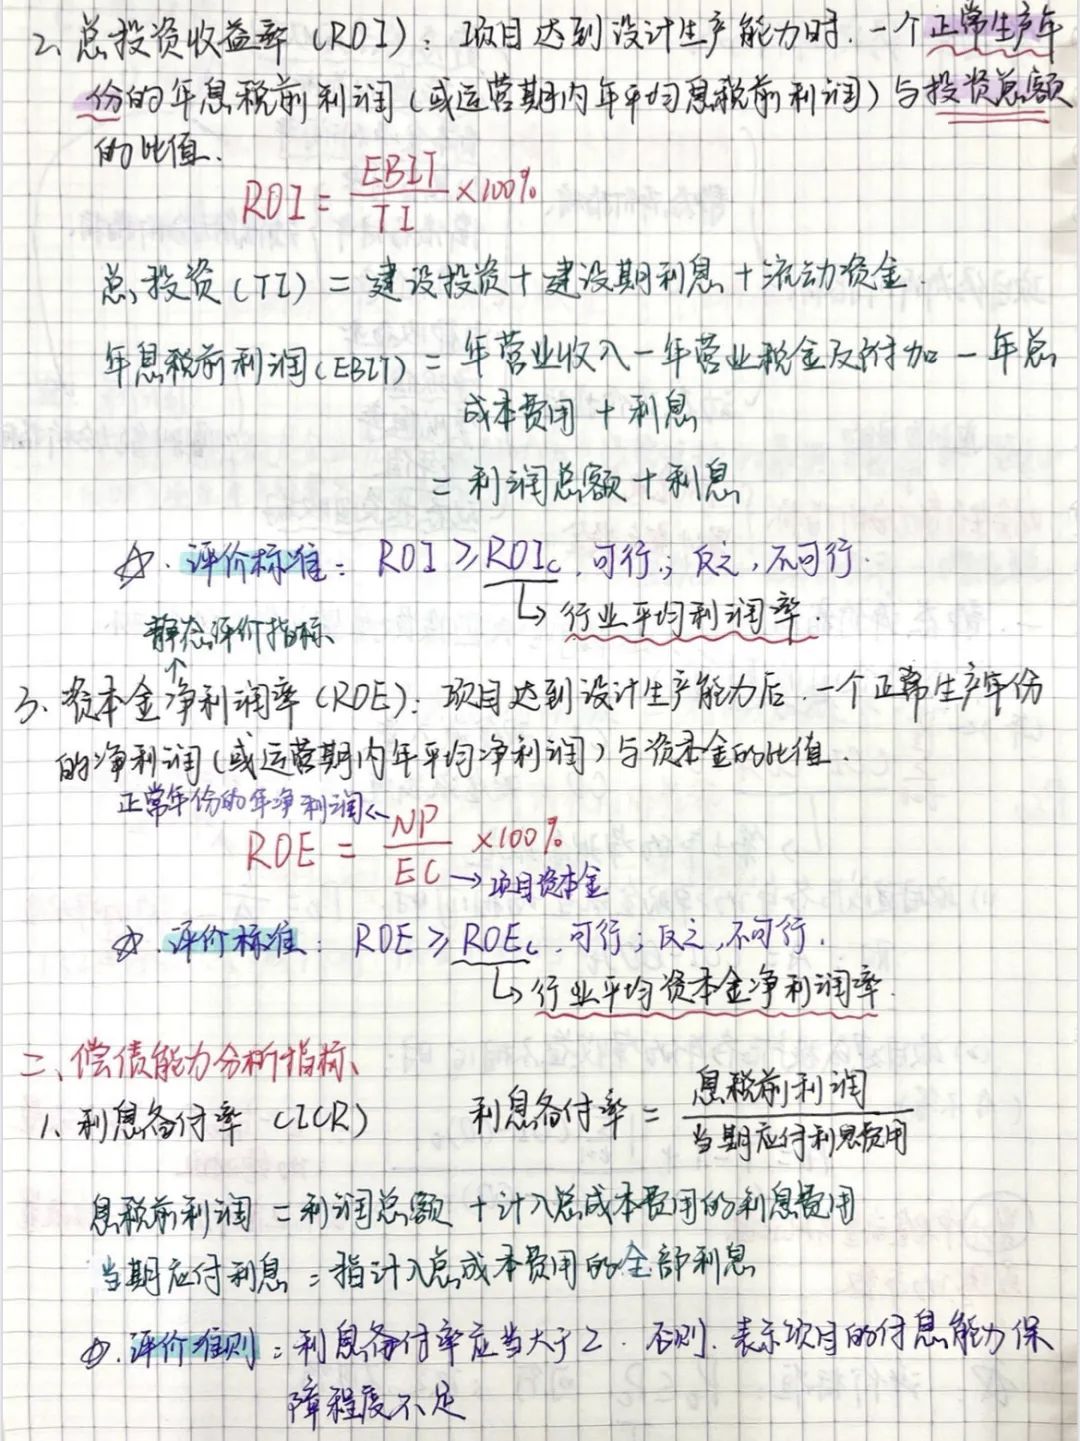 2、总投资收益率（ROI）：项目达到设计生产能力时，一个正常生产年
份的年息税前利润（或运营期内年平均息税前利润）与投资总额
的比值.
ROI = EBIT/TI ×100%
总投资（TI）= 建设投资 + 建设期利息 + 流动资金.
年息税前利润（EBIT）= 年营业收入 - 年营业税金及附加 - 年总
成本费用 + 利息
= 利润总额 + 利息
☆. 评价标准： ROI ≥ ROIc, 可行; 反之, 不可行.
↳ 行业平均利润率.
静态评价指标
↑
3、资本金净利润率（ROE）：项目达到设计生产能力后, 一个正常生产年份
的净利润（或运营期内年平均净利润）与资本金的比值.
正常年份的年净利润←
ROE = NP/EC ×100%
→项目资本金
☆. 评价标准： ROE ≥ ROEc, 可行; 反之, 不可行.
↳ 行业平均资本金净利润率.
二、偿债能力分析指标、
1、利息备付率（ICR） 利息备付率 = 息税前利润/当期应付利息费用
息税前利润 = 利润总额 + 计入总成本费用的利息费用
当期应付利息 = 指计入总成本费用的全部利息
☆. 评价准则：利息备付率应当大于2. 否则. 表示项目的付息能力保
障程度不足